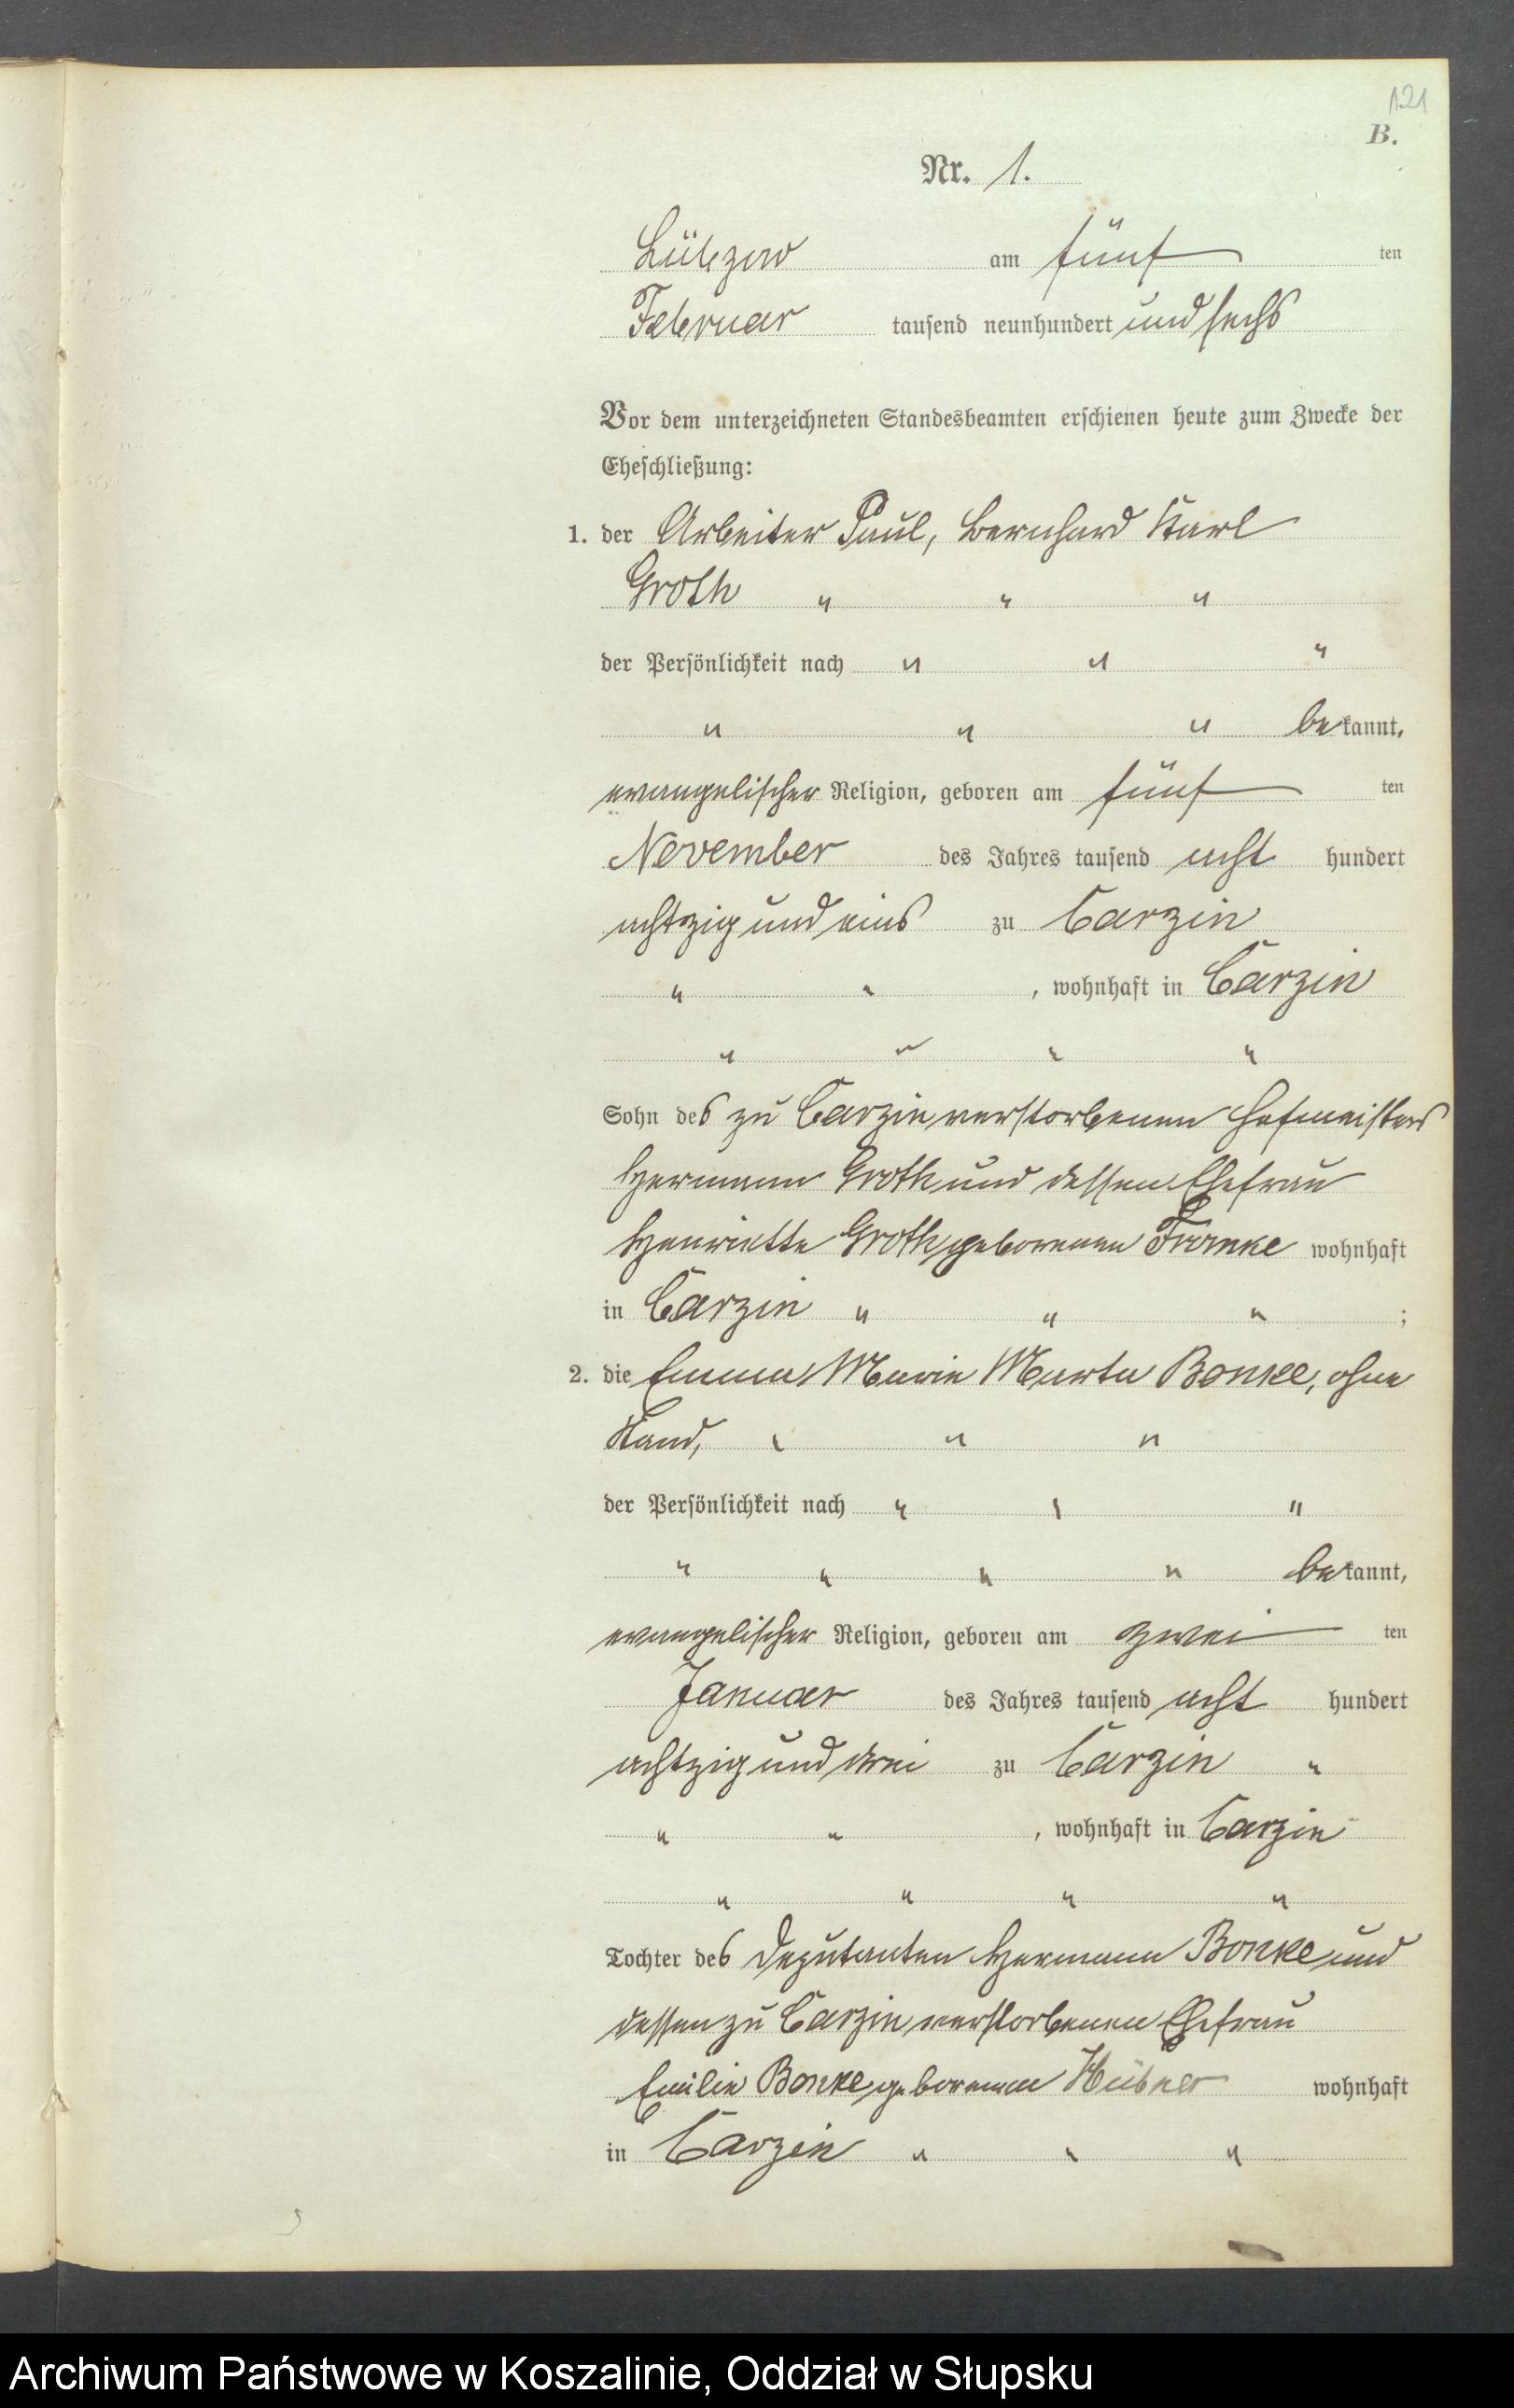 121
B.
Nr. 1.
Lübzow am fünf ten
Februar tausend neunhundert und sechs
Vor dem unterzeichneten Standesbeamten erschienen heute zum Zwecke der
Eheschließung:
1. der Arbeiter Paul, Bernhard Karl
Groth " " "
der Persönlichkeit nach " " "
" " " bekannt,
evangelischer Religion, geboren am fünf ten
November des Jahres tausend acht hundert
achtzig und eins zu Carzin
" " , wohnhaft in Carzin
" " " "
Sohn des zu Carzin verstorbenen Hofmeisters
Hermann Groth und dessen Ehefrau
Henriette Groth geborenen wohnhaft
in Carzin " " " ;
2. die Emma Marie Marta Bonke, ohne
Stand, " " "
der Persönlichkeit nach " " "
" " " " bekannt,
evangelischer Religion, geboren am zwei ten
Januar des Jahres tausend acht hundert
achtzig und drei zu Carzin "
" " , wohnhaft in Carzin
" " " "
Tochter des Deputanten Hermann Bonke und
dessen zu Carzin verstorbenen Ehefrau
Emilie Bonke geborenen Hübner wohnhaft
in Carzin " " "
Archiwum Państwowe w Koszalinie, Oddział w Słupsku